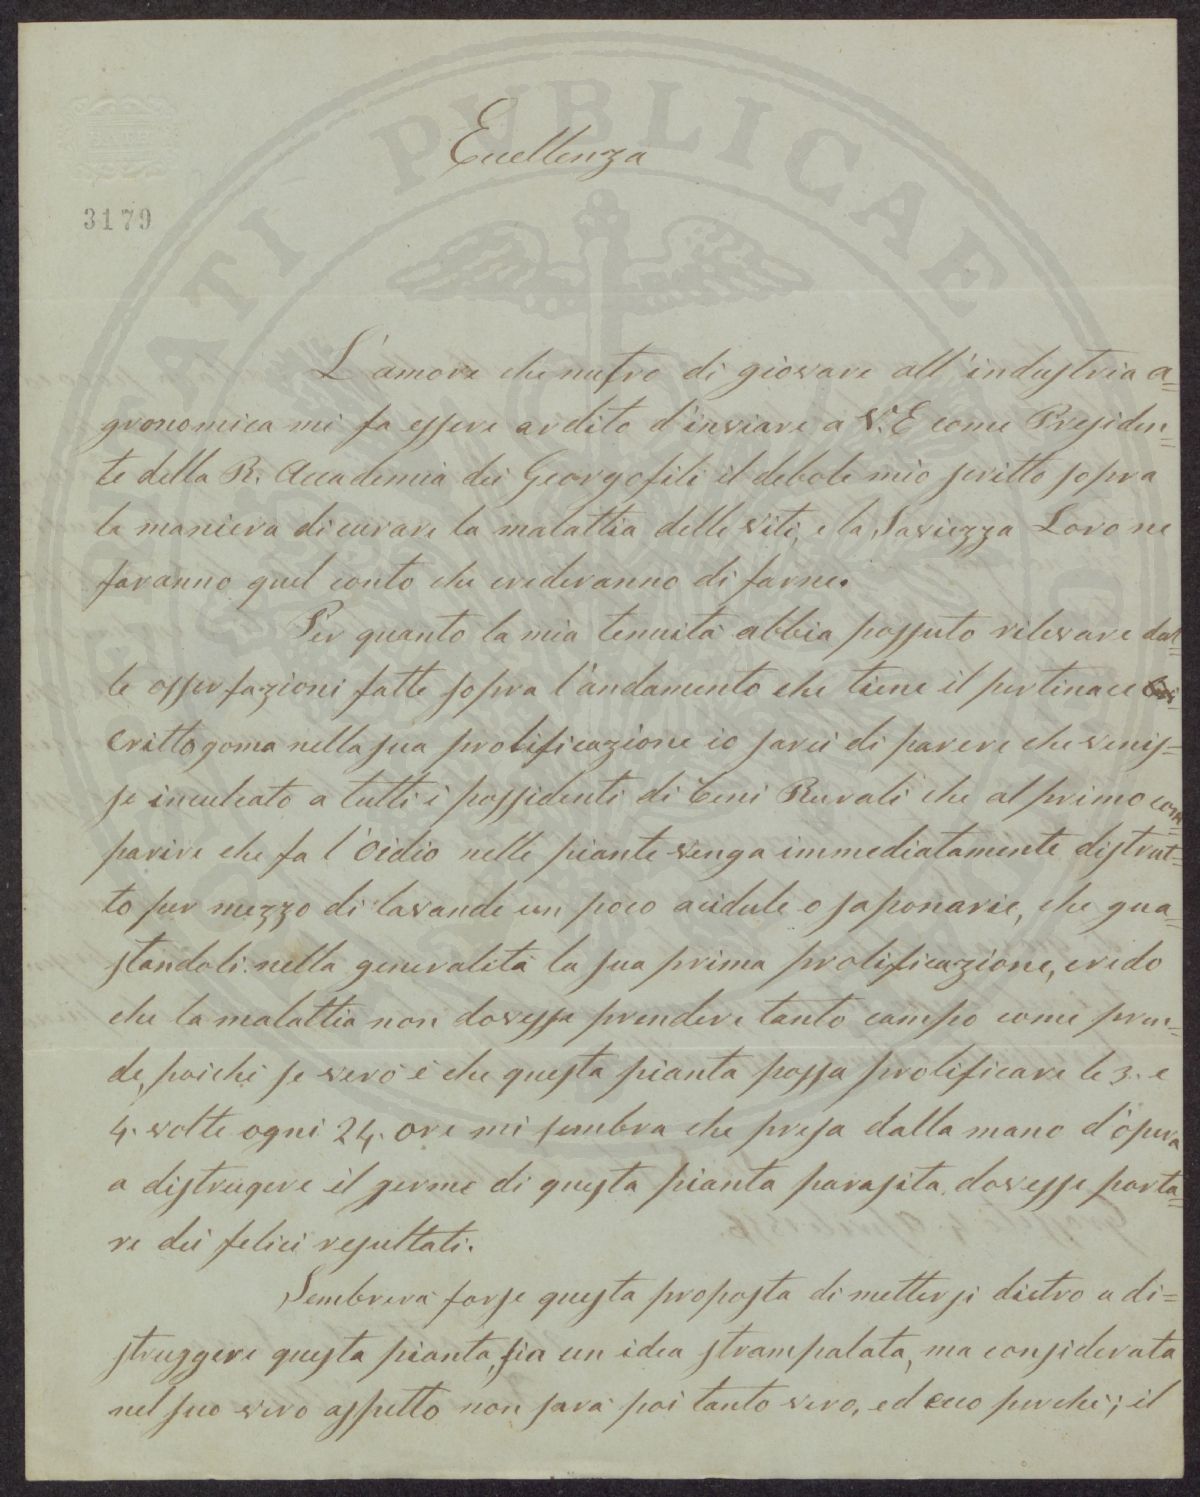 Eccellenza
3179
L'amore che nutro di giovare all'industria a=
gronomica mi fa essere ardito d'inviare a V.E come Presiden=
te della R. Accademia dei Georgofili il debole mio scritto sopra
la maniera di curare la malattia delle viti, e la Saviezza Loro ne
faranno quel conto che crederanno di farne.
Per quanto la mia tenuità abbia possuto rilevare dal=
le osservazioni fatte sopra l'andamento che tiene il pertinace
Crittogoma nella sua prolificazione io sarei di parere che venis=
se inculcato a tutti i possidenti di Beni Rurali che al primo com=
parire che fa l'Oidio nelle piante venga immediatamente distrut=
to per mezzo di lavande un poco acidule o saponarie, che gua=
standoli nella generalità la sua prima prolificazione, credo
che la malattia non dovesse prendere tanto campo come pren=
de, poichè se vero è che questa pianta possa prolificare le 3. e
4. volte ogni 24. ore mi sembra che presa dalla mano d'opera
a distrugere il germe di questa pianta parasita, dovesse porta=
re dei felici resultati.
Sembrerà forse questa proposta di mettersi dietro a di=
struggere questa pianta, sia un idea strampalata, ma considerata
nel suo vero aspetto non sarà poi tanto vero, ed ecco perchè; il